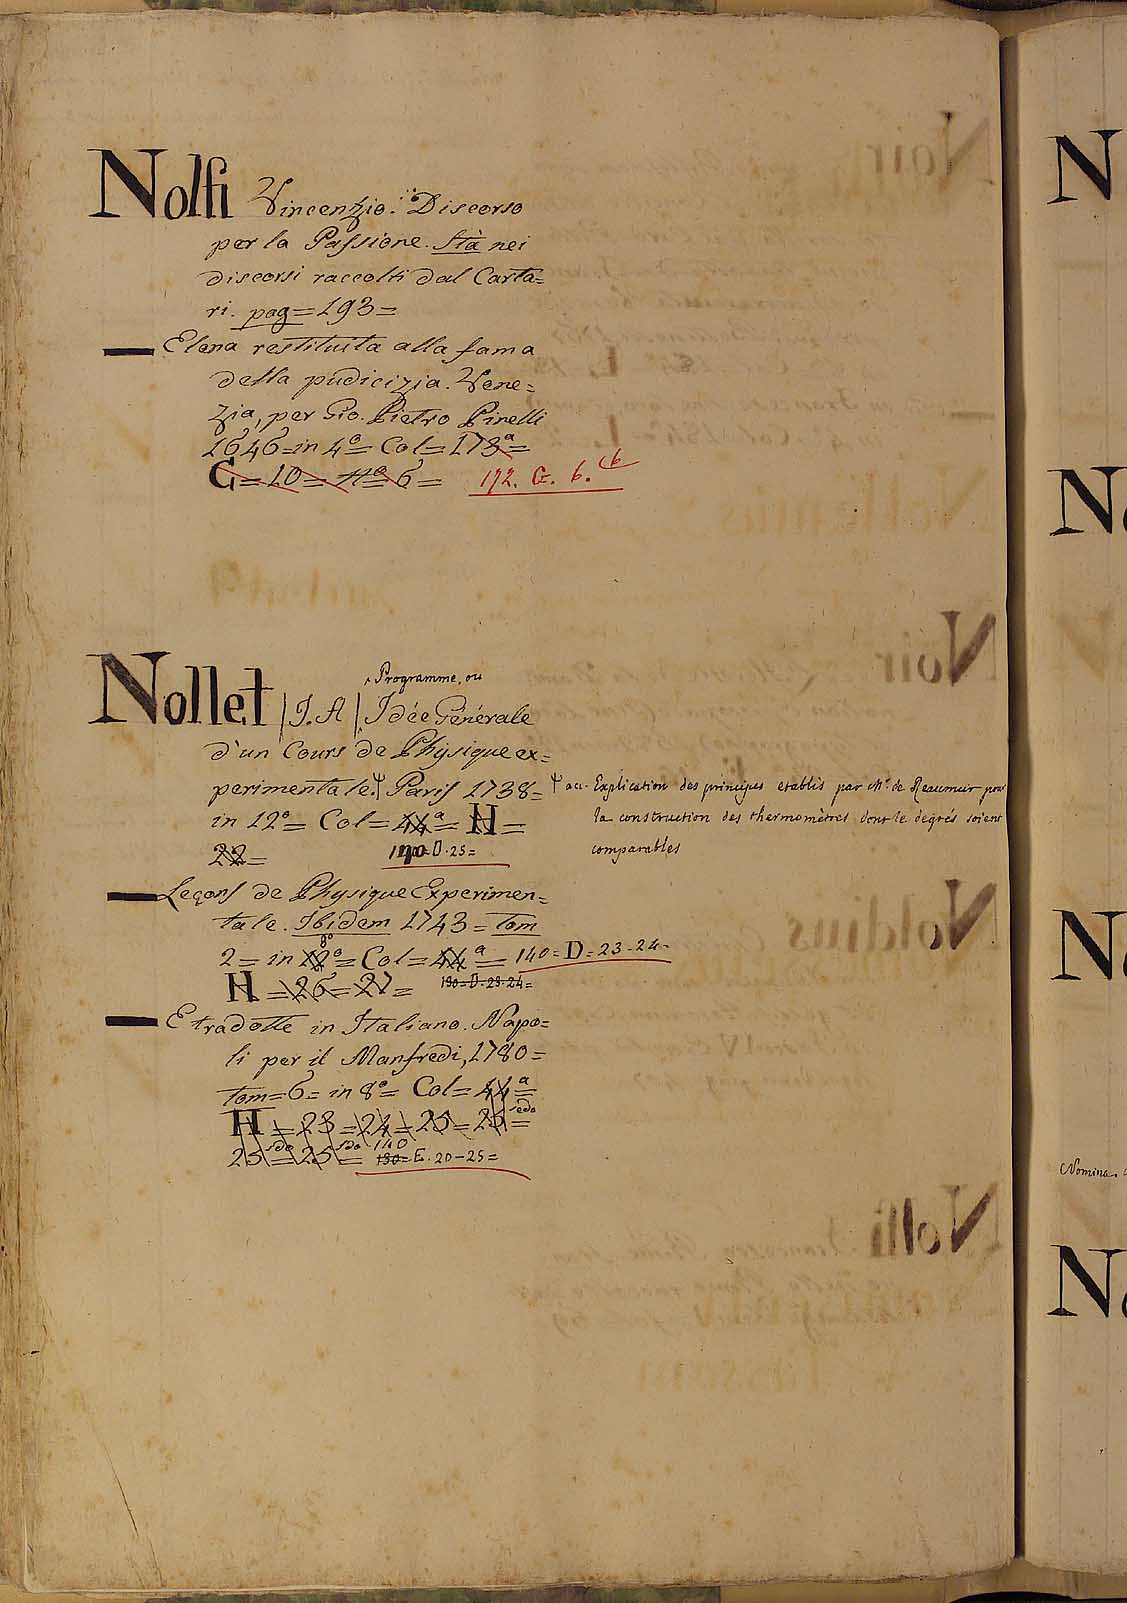 Nolfi Vincenzio. Discorso
per la Passione. Stà nei
discorsi raccolti dal Carta=
ri. pag=193=
Elena restituita alla fama
della pudicizia. Vene=
zia, per Gio. Pietro Pinelli
1646=in 4º= Col=173ª=
G=10= 6= 172. G. 6.
Programme, ou
Nollet (J. A) Idée Générale
d'un Cours de Physique ex=
perimentale. Paris 1738=
acc. Explication des principes etablis par Mr. de Reaumur pour
la construction des thermomètres dont le degrés soient
comparables
in 12º= Col=44ª= H=
22= D.25=
Leçons de Physique Experimen=
tale. Ibidem 1743= tom
8º
2= in 12º= Col=44ª= 140=D=23-24=
H=26=27= 130=D=23-24=
E tradotte in Italiano. Napo=
li per il Manfredi, 1780=
tom=6= in 8º= Col=44ª=
H=23=24=25=25sedo=
140
25sdo=25sdo= 130=E.20-25=
N
No
No
Nomina
No